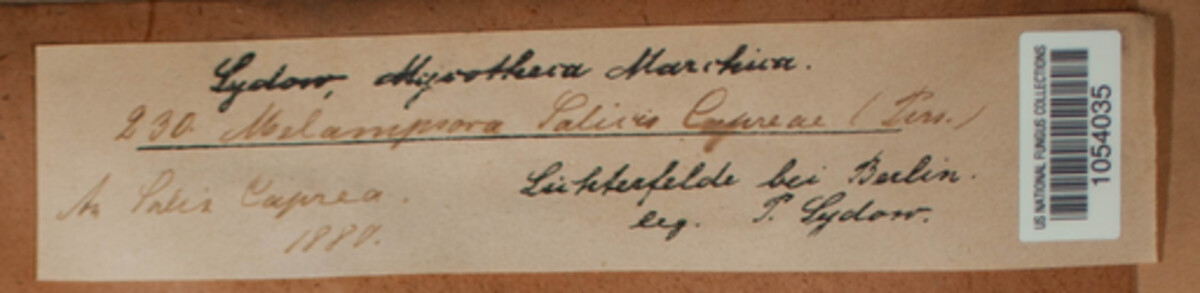 Sydow, Mycotheca Marchica.
230. Melampsora Salicis Capreae (Pers.)
An Salix Caprea.
1880.
Lichterfelde bei Berlin.
leg. P. Sydow.
US NATIONAL FUNGUS COLLECTIONS
1054035